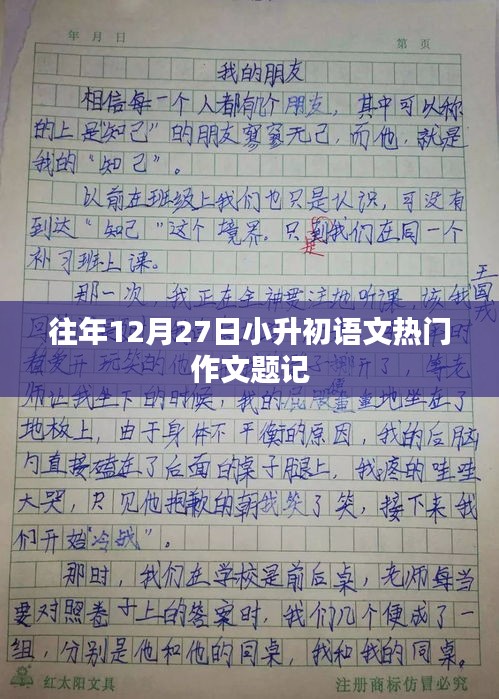 年 月 日
第 页
我的朋友
相信每一个人都有几个朋友，其中可以称
的上是"知己"的朋友寥寥无己，而他，就是
我的"知己"。
以前在班级上我们也只是认识，可没有
到达"知己"这个境界。只到我们在同一个
是
补习班上课。
那一次，我正在全神贯注地听课，该我
往年12月27日小升初语文热门
作文题记
着爱开玩笑的他
开了，等老
师让我坐下的时候，我的屁股重重地坐在了
地板上，由于身体不平衡的原因，我的后脑
勺直接磕在了后面的桌子腿上，我疼的哇哇
大哭，只见他抱歉的朝我笑了笑，接下来我
们开始"冷战"。
那时，我们在学校是前后桌，老师每当
要对照卷子上的答案时，我们几个便成了一
组，分别是他和他的同桌，我和我的同桌。
红太阳文具
注册商标仿冒必究